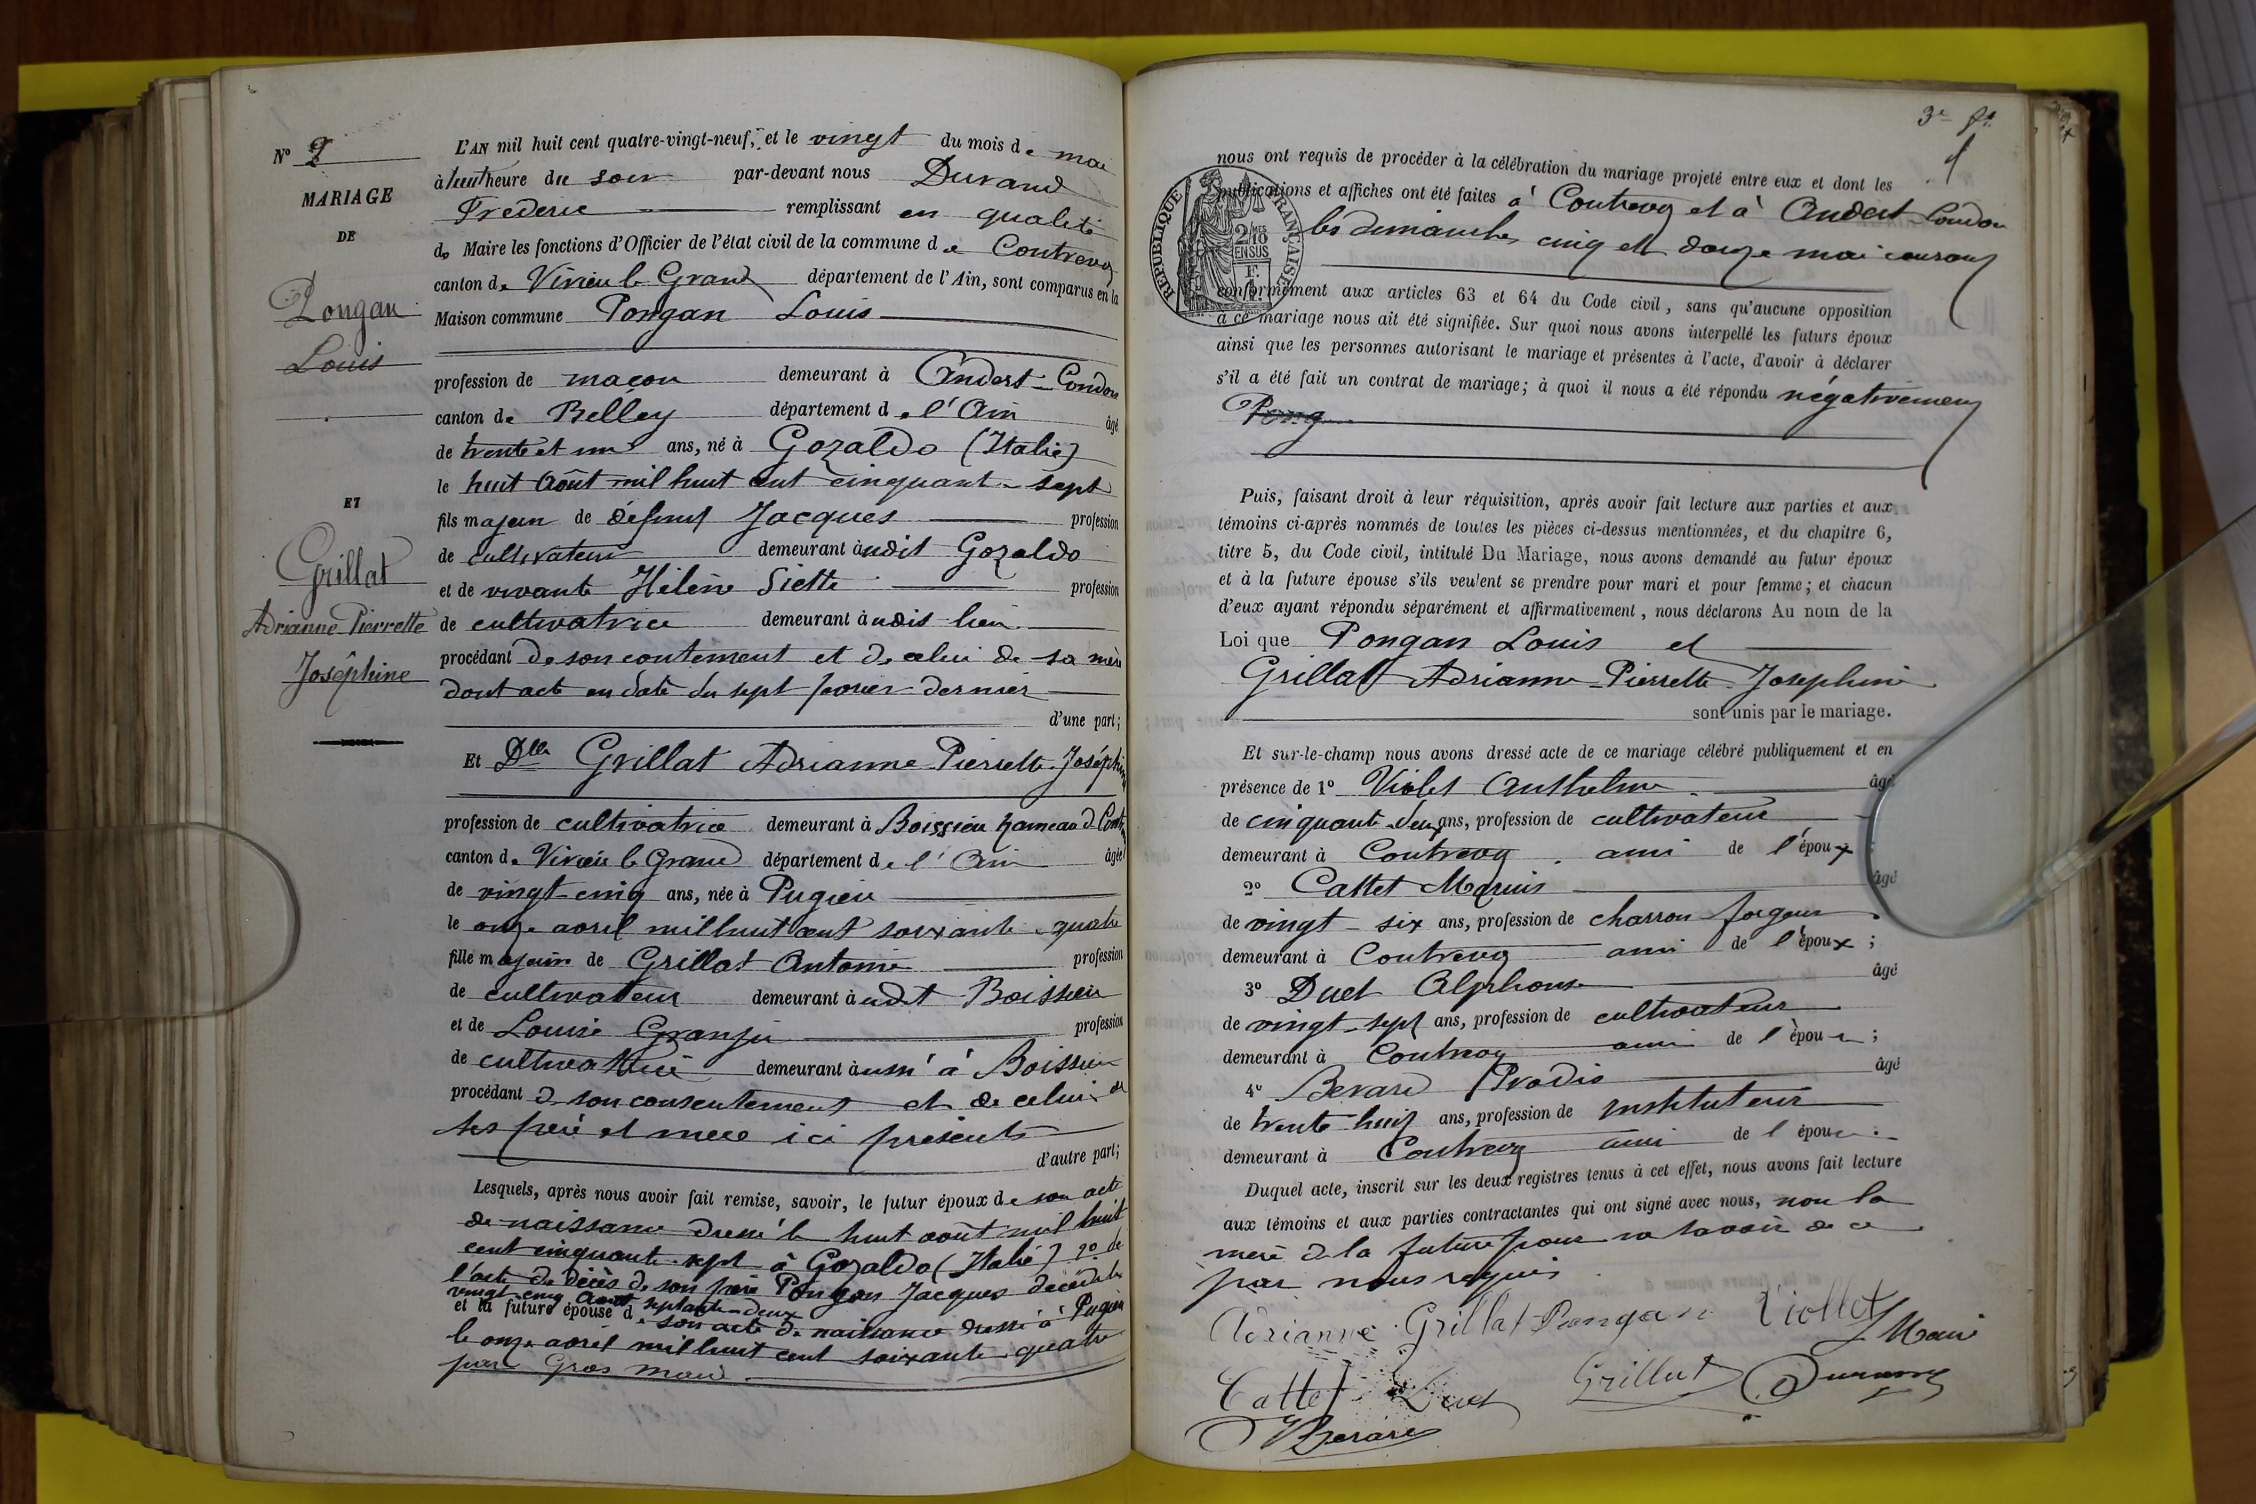 N° 2
MARIAGE
DE
Pongan
Louis
ET
Grillat
Adrianne Pierrette
Joséphine
L'AN mil huit cent quatre-vingt-neuf, et le vingt du mois de mai
à huit heure du soir par-devant nous Durand
Frédéric remplissant en qualité
de Maire les fonctions d'Officier de l'état civil de la commune de Contrevoz
canton de Virieu le Grand département de l'Ain, sont comparus en la
Maison commune Pongan Louis
profession de maçon demeurant à Andert-Condon
canton de Belley département de l'Ain âgé
de trente et un ans, né à Gozaldo (Italie)
le huit Août mil huit cent cinquante-sept
fils majeur de défunt Jacques profession
de cultivateur demeurant audit Gozaldo
et de vivante Hélène Siette profession
de cultivatrice demeurant audis lieu
procédant de son contement et de celui de sa mère
dont acte en date du sept février dernier
d'une part;
Et Dlle Grillat Adrianne Pierrette Joséphine
profession de cultivatrice demeurant à Boissieu hameau de
canton de Virieu le Grand département de l'Ain âgée
de vingt-cinq ans, née à Pugieu
le onze avril mil huit cent soixante-quatre
fille majeure de Grillat Antoine profession
de cultivateur demeurant audit Boissieu
et de Louise Granju profession
de cultivatrice demeurant à Boissieu
procédant de son consentement et de celui de
ses père et mère ici présents
d'autre part;
Lesquels, après nous avoir fait remise, savoir, le futur époux de son acte
de naissance dressé le huit août mil huit
cent cinquante-sept à Gozaldo (Italie) 2° de
l'acte de décès de son père Pongan Jacques décédé le
vingt cinq Août septante-deux
et la future épouse de son acte de naissance dressé à Pugieu
le onze avril mil huit cent soixante-quatre
par Gros maire
3e
nous ont requis de procéder à la célébration du mariage projeté entre eux et dont les
publications et affiches ont été faites à Contrevoz et à Andert-Condon
les dimanches cinq et douze mai courant
RÉPUBLIQUE FRANÇAISE
2/10 EN SUS
conformément aux articles 63 et 64 du Code civil, sans qu'aucune opposition
à ce mariage nous ait été signifiée. Sur quoi nous avons interpellé les futurs époux
ainsi que les personnes autorisant le mariage et présentes à l'acte, d'avoir à déclarer
s'il a été fait un contrat de mariage; à quoi il nous a été répondu négativement
Pong
Puis, faisant droit à leur réquisition, après avoir fait lecture aux parties et aux
témoins ci-après nommés de toutes les pièces ci-dessus mentionnées, et du chapitre 6,
titre 5, du Code civil, intitulé Du Mariage, nous avons demandé au futur époux
et à la future épouse s'ils veulent se prendre pour mari et pour femme; et chacun
d'eux ayant répondu séparément et affirmativement, nous déclarons Au nom de la
Loi que Pongan Louis et
Grillat Adrianne Pierrette Joséphine
sont unis par le mariage.
Et sur-le-champ nous avons dressé acte de ce mariage célébré publiquement et en
présence de 1° Violet Anthelme âgé
de cinquante-deux ans, profession de cultivateur
demeurant à Contrevoz ami de l'époux
2° Cattet Marius âgé
de vingt-six ans, profession de charron forgeur
demeurant à Contrevoz ami de l'époux ;
3° Duet Alphonse âgé
de vingt-sept ans, profession de cultivateur
demeurant à Contrevoz ami de l'époux ;
4° Berard Prodis âgé
de trente-huit ans, profession de instituteur
demeurant à Contrevoz ami de l'époux.
Duquel acte, inscrit sur les deux registres tenus à cet effet, nous avons fait lecture
aux témoins et aux parties contractantes qui ont signé avec nous, non la
mère de la future pour ne savoir de ce
par nous requis
Adrianne Grillat Pongan Viollet
Maire
Cattet Duet Grillat Durand
Berard